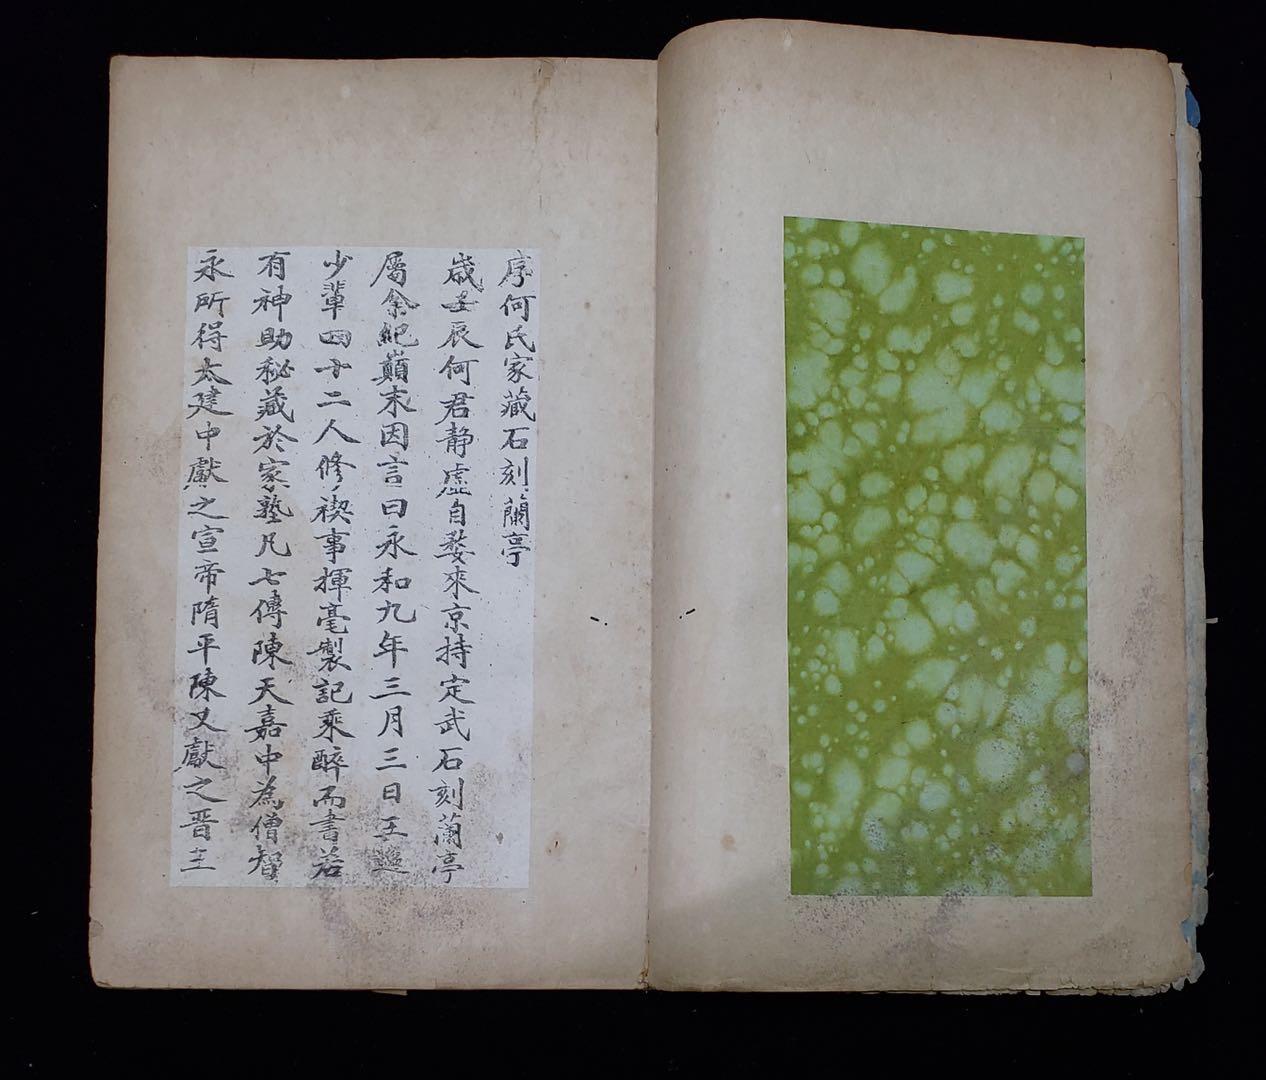 序何氏家藏石刻蘭亭
歲壬辰何君靜虛自婺來京持定武石刻蘭亭
屬余紀巔末因言曰永和九年三月三日王逸
少輩四十二人修禊事揮毫製記乘醉而書若
有神助秘藏於家塾凡七傳陳天嘉中為僧智
永所得太建中獻之宣帝隋平陳又獻之晉主